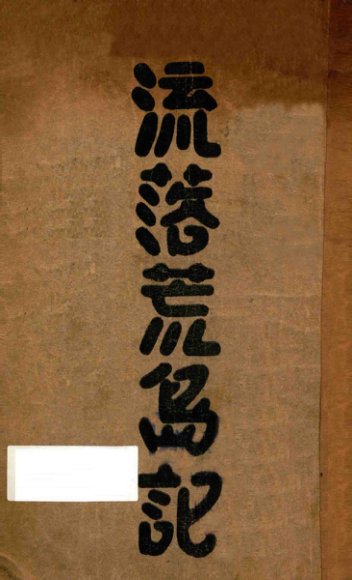 流落荒島記